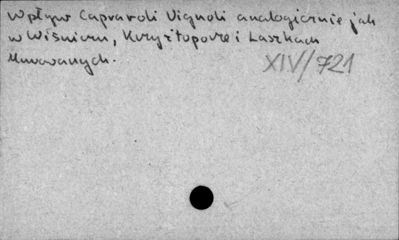 Wpływ Capraroli Vignoli analogicznie jak
w Wiśniczu, Krzyżtoporze i Laszkach
Murowanych.
XIV/721